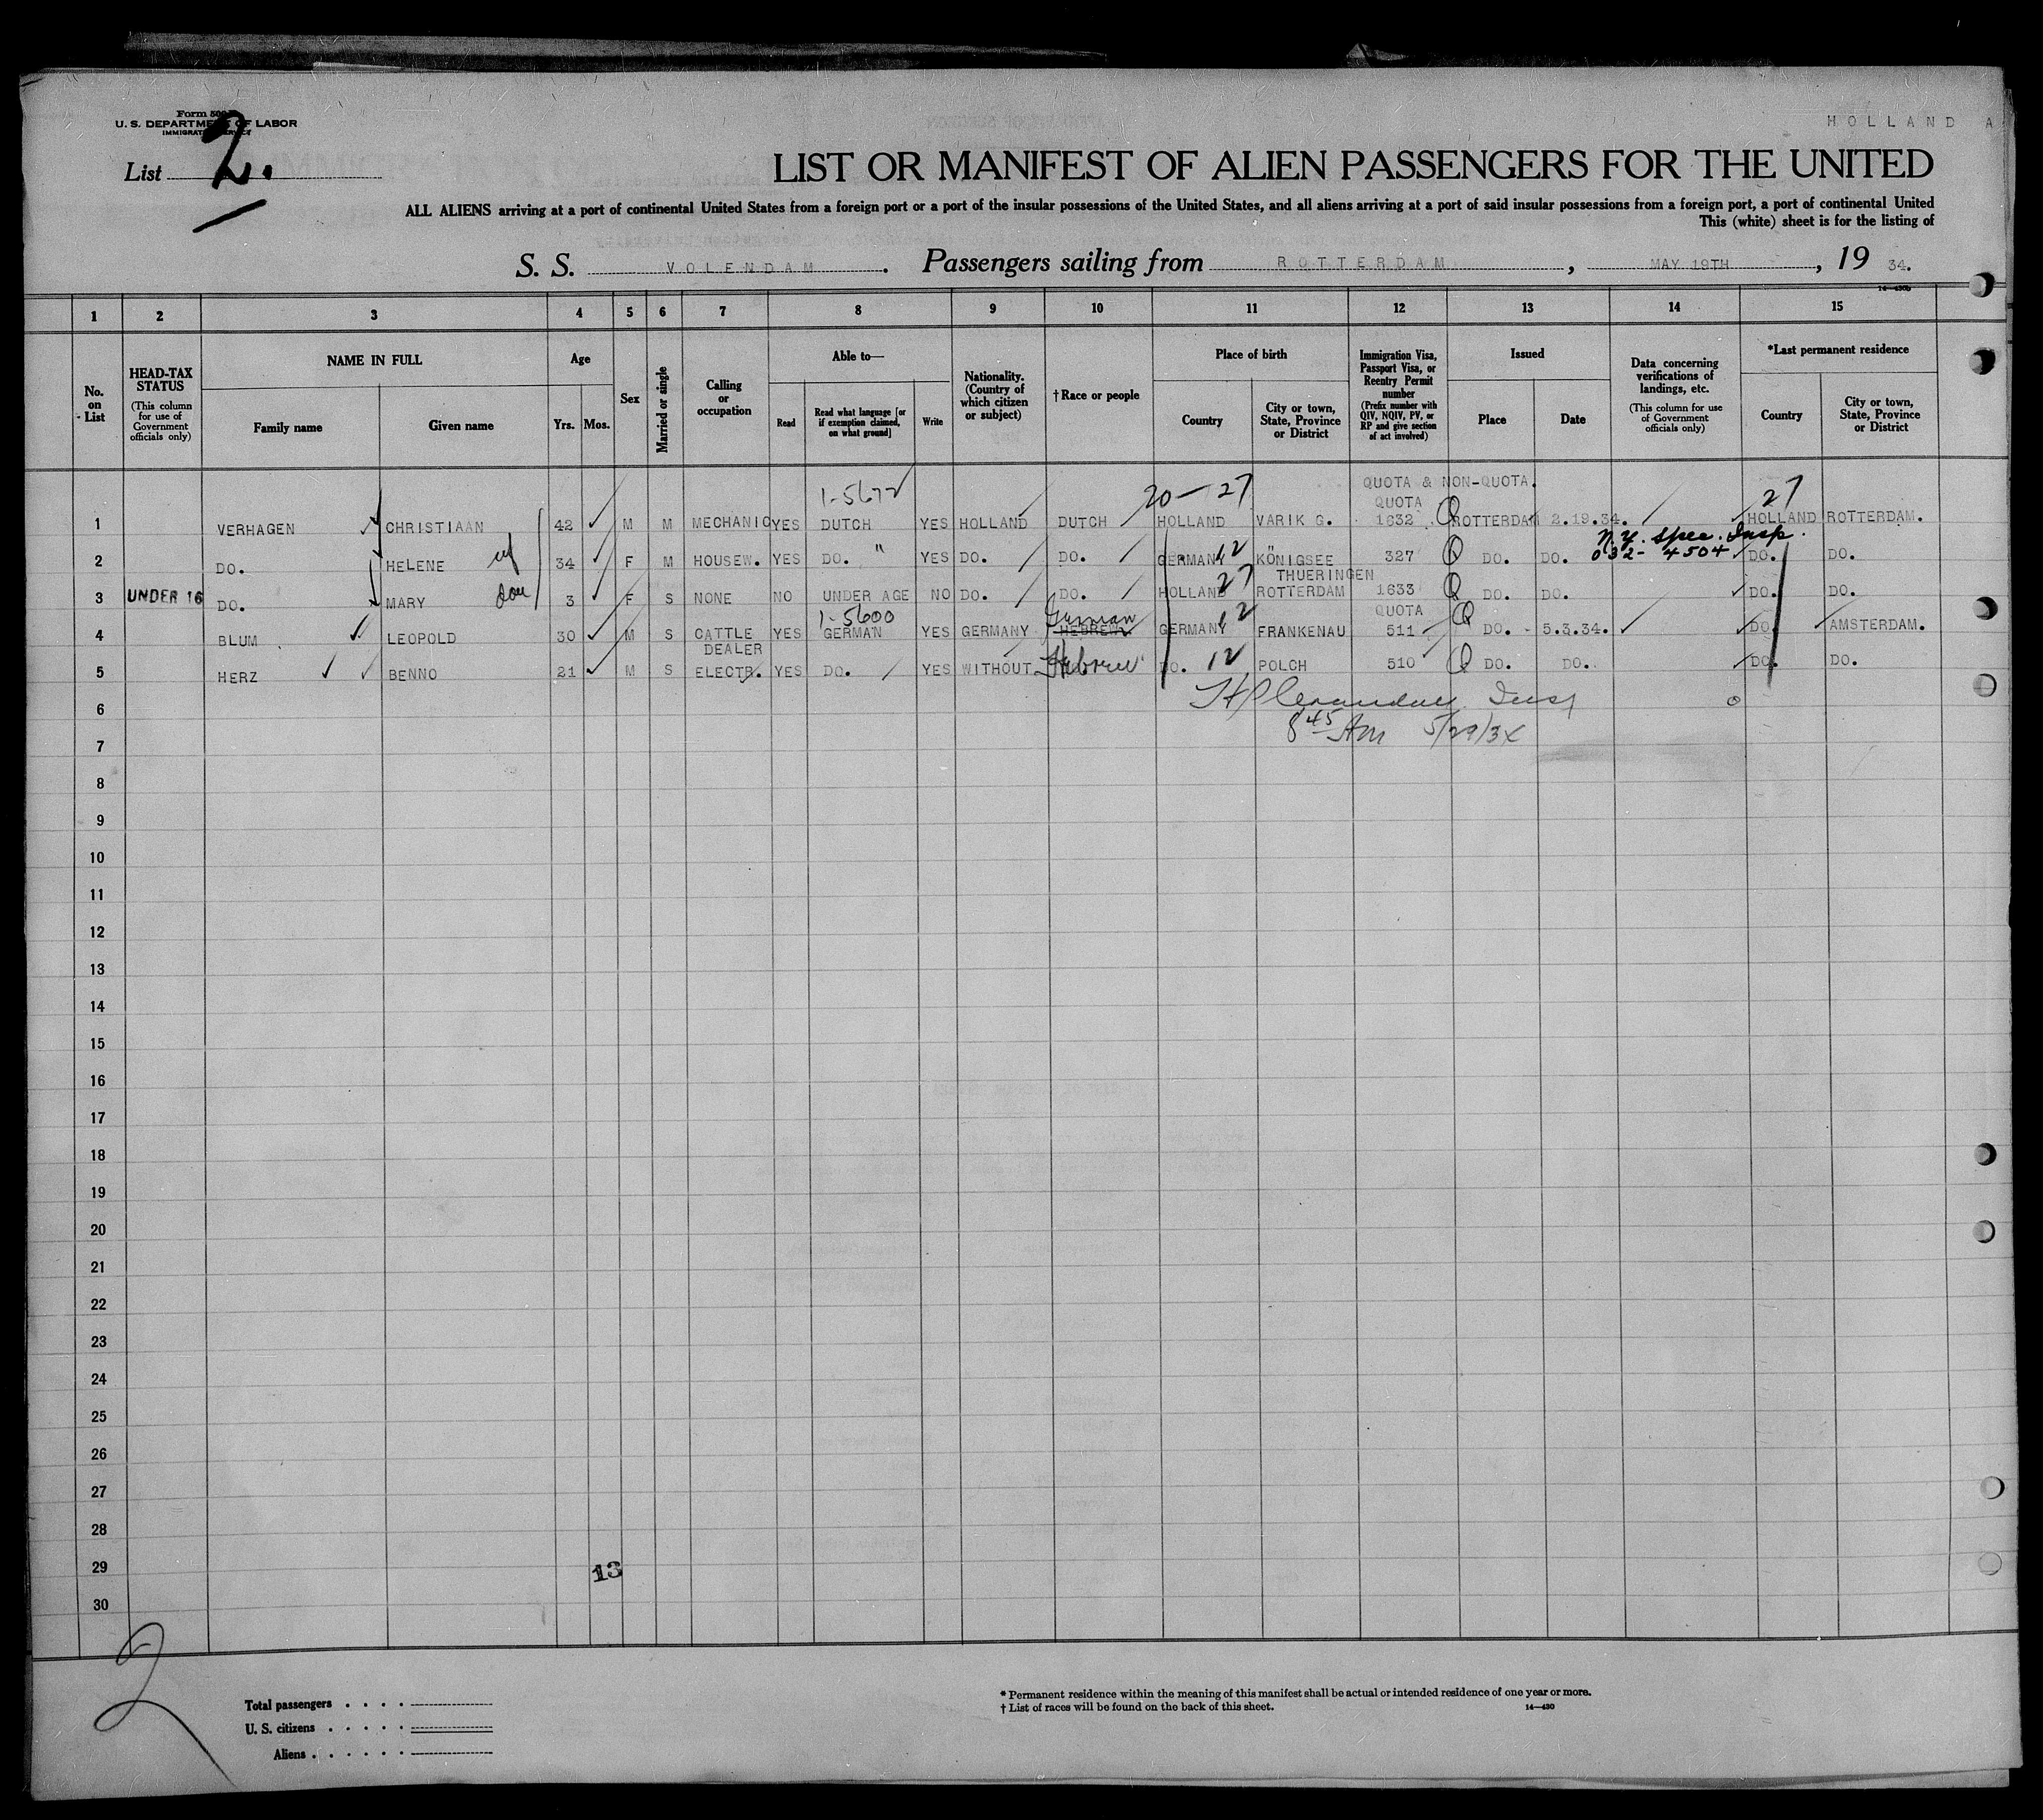 HOLLAND A
Form 500
U. S. DEPARTMENT OF LABOR
IMMIGRATION SERVICE
List 2.
LIST OR MANIFEST OF ALIEN PASSENGERS FOR THE UNITED
ALL ALIENS arriving at a port of continental United States from a foreign port or a port of the insular possessions of the United States, and all aliens arriving at a port of said insular possessions from a foreign port, a port of continental United
This (white) sheet is for the listing of
S. S. VOLENDAM. Passengers sailing from ROTTERDAM, MAY 19TH, 19 34.
1 2 3 4 5 6 7 8 9 10 11 12 13 14 15
No. on List
HEAD-TAX STATUS
(This column for use of Government officials only)
NAME IN FULL
Family name
Given name
Age
Yrs. Mos.
Sex
Married or single
Calling or occupation
Able to—
Read
Read what language [or if exemption claimed, on what ground]
Write
Nationality. (Country of which citizen or subject)
†Race or people
Place of birth
Country
City or town, State, Province or District
Immigration Visa, Passport Visa, or Reentry Permit number
(Prefix number with QIV, NQIV, PV, or RP and give section of act involved)
Issued
Place
Date
Data concerning verifications of landings, etc.
(This column for use of Government officials only)
*Last permanent residence
Country
City or town, State, Province or District
QUOTA & NON-QUOTA.
1-5672 20-27 QUOTA 27
1 VERHAGEN CHRISTIAAN 42 M M MECHANIC YES DUTCH YES HOLLAND DUTCH HOLLAND VARIK G. 1632 Q ROTTERDAM 2.19.34. HOLLAND ROTTERDAM.
N.Y. Spec. Insp.
032-4504
2 DO. HELENE wf 34 F M HOUSEW. YES DO. " YES DO. DO. GERMANY 12 KÖNIGSEE 327 Q DO. DO. DO. DO.
THUERINGEN
3 UNDER 16 DO. MARY dau 3 F S NONE NO UNDER AGE NO DO. DO. HOLLAND 27 ROTTERDAM 1633 Q DO. DO. DO. DO.
1-5600 German 12 QUOTA
4 BLUM LEOPOLD 30 M S CATTLE DEALER YES GERMAN YES GERMANY HEBREW GERMANY FRANKENAU 511 Q DO. 5.3.34. DO. AMSTERDAM.
5 HERZ BENNO 21 M S ELECTR. YES DO. YES WITHOUT Hebrew DO. 12 POLCH 510 Q DO. DO. DO. DO.
6 Insp
7 8 45 Am 5/29/34
8
9
10
11
12
13
14
15
16
17
18
19
20
21
22
23
24
25
26
27
28
29 13
30
2
Total passengers . . . .
U. S. citizens . . . . .
Aliens . . . . . .
* Permanent residence within the meaning of this manifest shall be actual or intended residence of one year or more.
† List of races will be found on the back of this sheet.
14—430